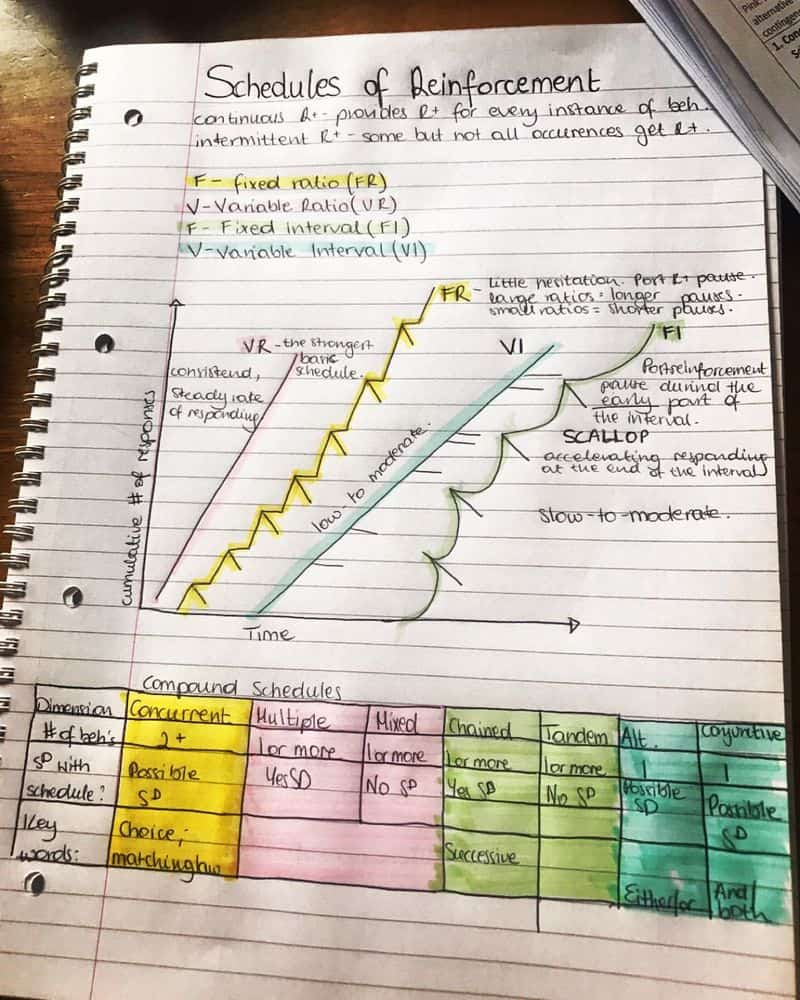 Schedules of Reinforcement
continuous R+ - provides R+ for every instance of beh.
intermittent R+ - some but not all occurences get R+.
F - fixed ratio (FR)
V - Variable Ratio (VR)
F - Fixed interval (FI)
V - Variable Interval (VI)
FR - Little hesitation. Port R+ pause.
large ratios = longer pauses.
small ratios = shorter pauses.
VR - the strongest
basic
schedule.
consistend,
steady rate
of responding
VI
low - to moderate.
FI
Portreinforcement
pause during the
early part of
the interval.
SCALLOP
accelerating responding
at the end of the interval
slow-to-moderate.
cumulative # of responses
Time
Compound Schedules
Dimension Concurrent Multiple Mixed Chained Tandem Alt. Conjuntive
# of beh's 2+ 1 or more 1 or more 1 or more 1 or more 1 1
SD with schedule? Possible SD Yes SD No SD Yes SD No SD Possible SD Possible SD
Key words: Choice; Successive Either/or And/both
Pink:
alternative
contingen
1. Con